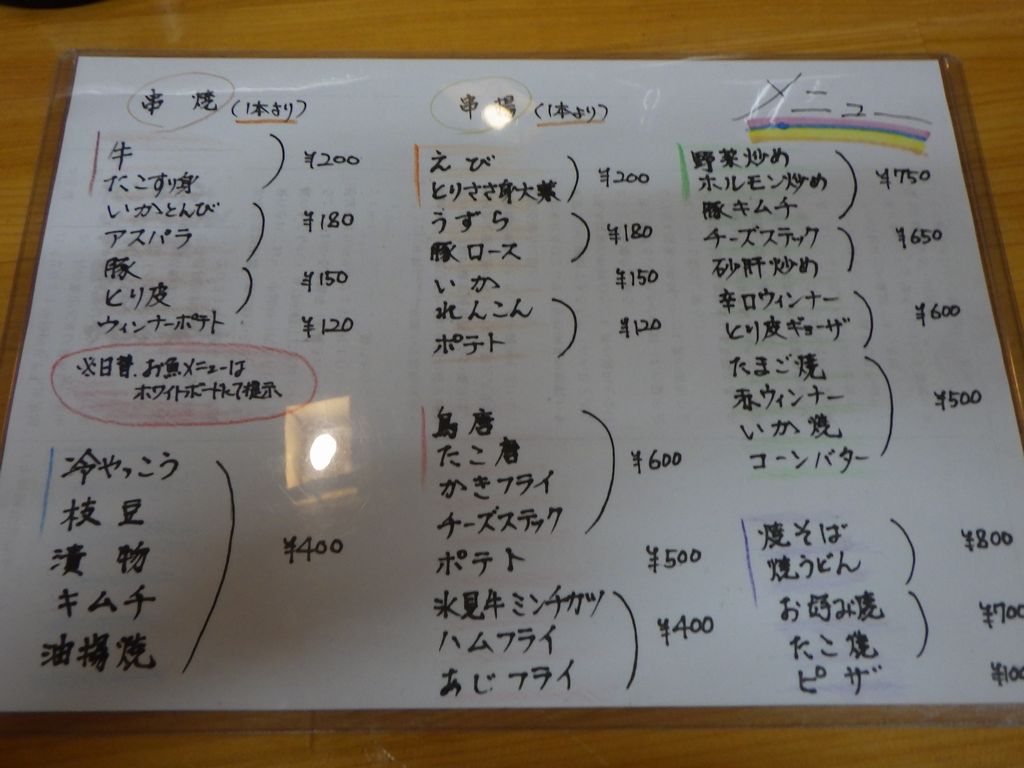 メニュー
串焼 (1本より)
牛
たこすり身
¥200
いかとんび
アスパラ
¥180
豚
とり皮
¥150
ウィンナーポテト ¥120
※日替.お魚メニューは
ホワイトボードにて提示
冷やっこう
枝豆
漬物
キムチ
油揚焼
¥400
串揚 (1本より)
えび
とりささ身大葉
¥200
うずら
豚ロース
¥180
いか ¥150
れんこん
ポテト
¥120
鳥唐
たこ唐
かきフライ
チーズステック
¥600
ポテト ¥500
氷見牛ミンチカツ
ハムフライ
あじフライ
¥400
野菜炒め
ホルモン炒め
豚キムチ
¥750
チーズステック
砂肝炒め
¥650
辛口ウィンナー
とり皮ギョーザ
¥600
たまご焼
赤ウィンナー
いか焼
コーンバター
¥500
焼そば
焼うどん
¥800
お好み焼
たこ焼
¥700
ピザ